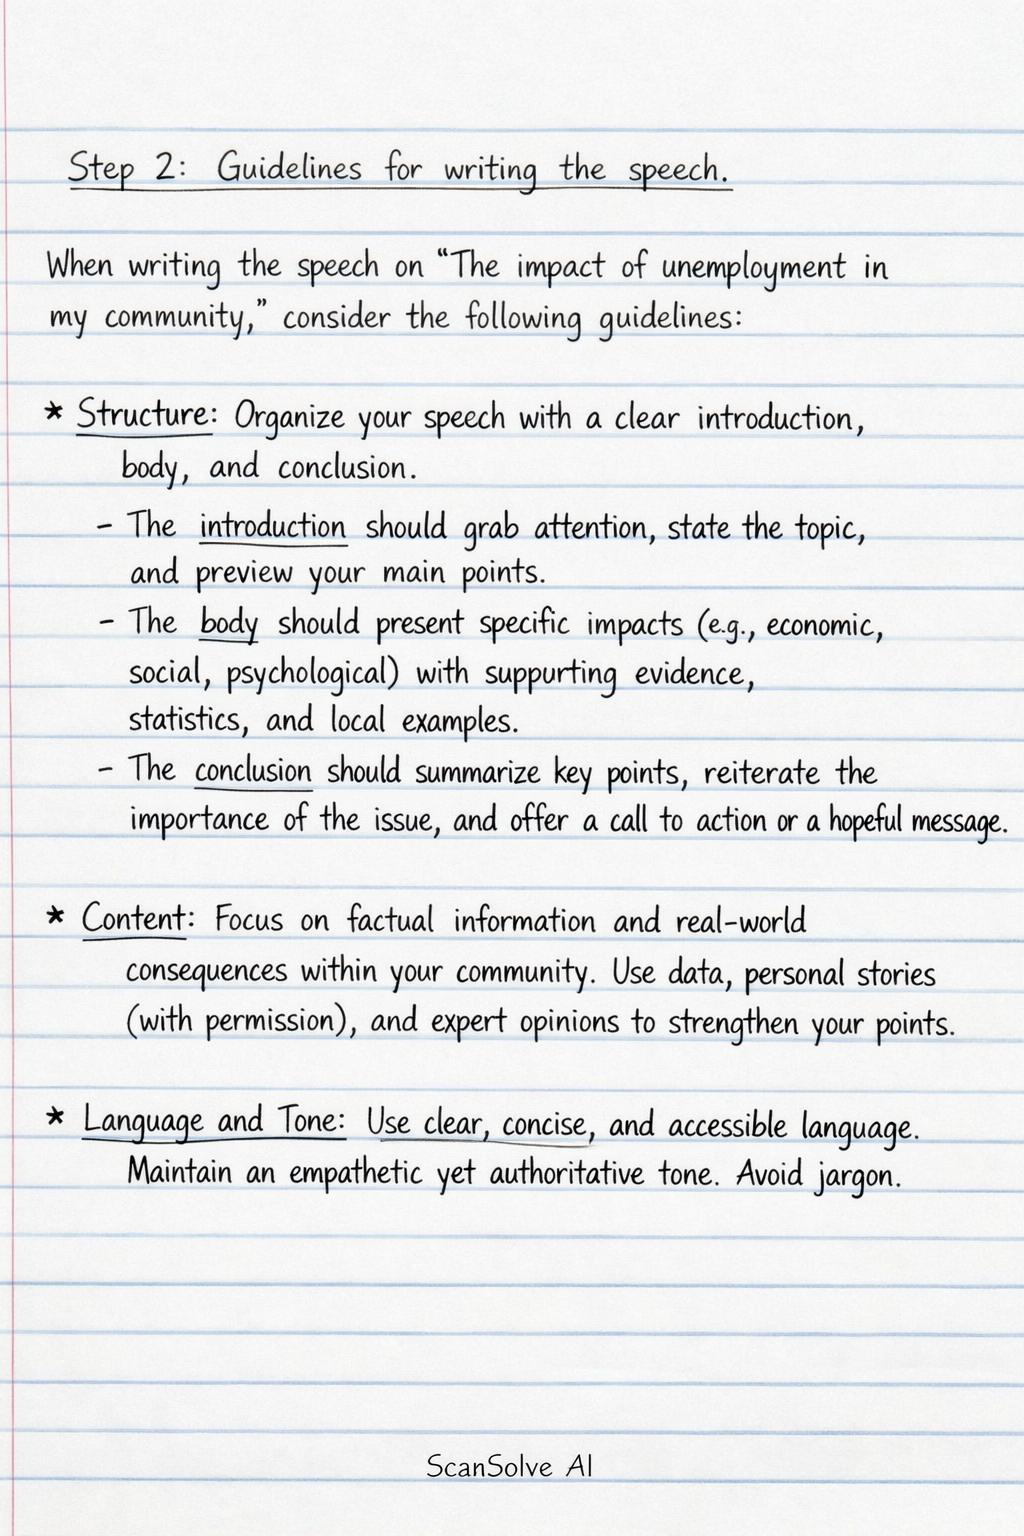 Step 2: Guidelines for writing the speech.
When writing the speech on “The impact of unemployment in
my community,” consider the following guidelines:
* Structure: Organize your speech with a clear introduction,
body, and conclusion.
- The introduction should grab attention, state the topic,
and preview your main points.
- The body should present specific impacts (e.g., economic,
social, psychological) with supporting evidence,
statistics, and local examples.
- The conclusion should summarize key points, reiterate the
importance of the issue, and offer a call to action or a hopeful message.
* Content: Focus on factual information and real-world
consequences within your community. Use data, personal stories
(with permission), and expert opinions to strengthen your points.
* Language and Tone: Use clear, concise, and accessible language.
Maintain an empathetic yet authoritative tone. Avoid jargon.
ScanSolve AI